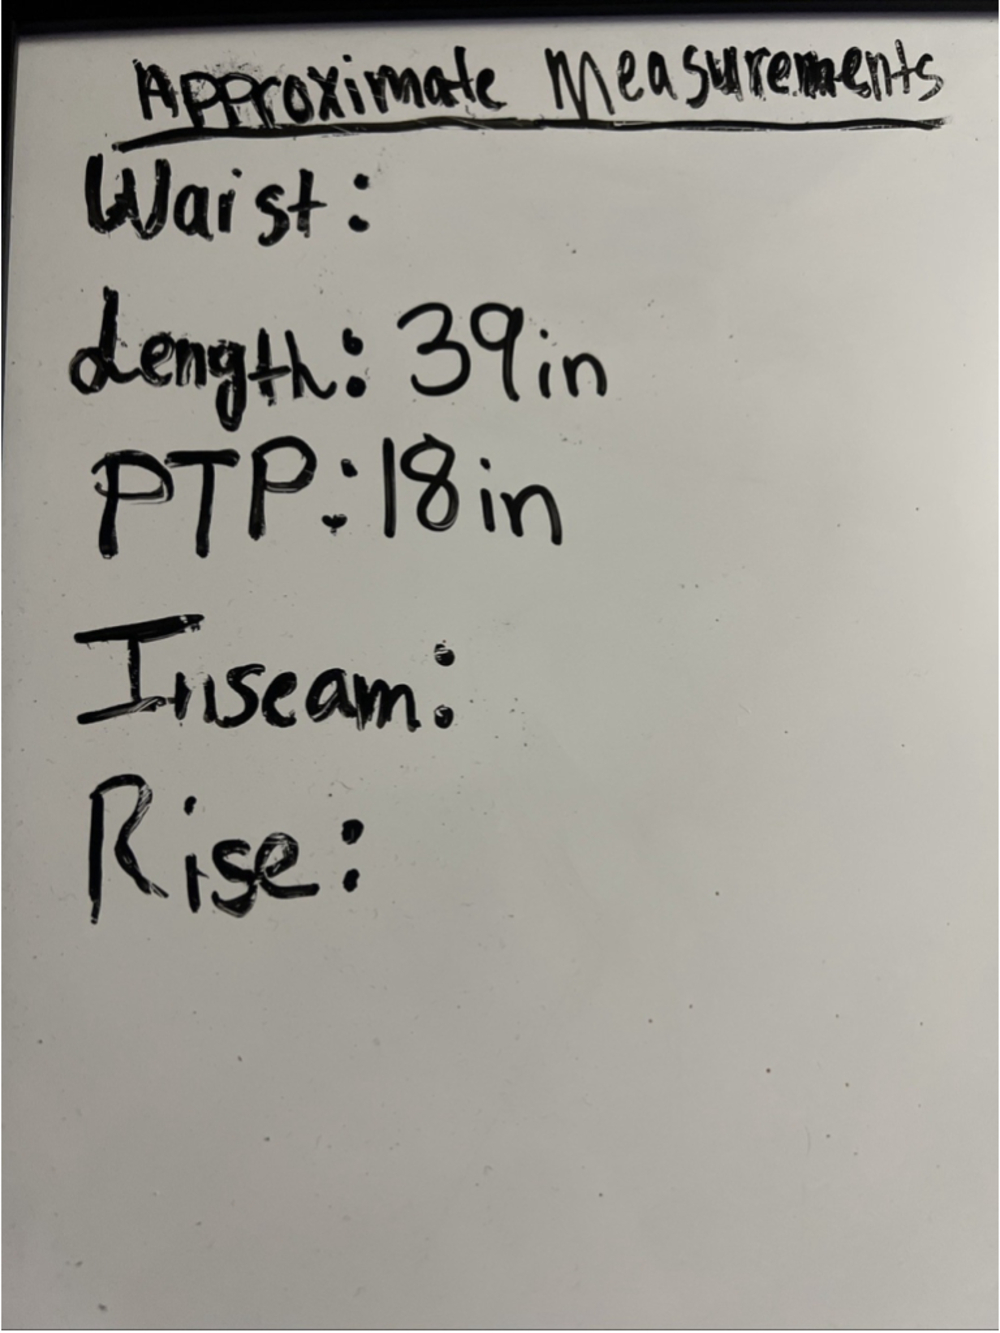 Approximate Measurements
Waist:
Length: 39in
PTP: 18in
Inseam:
Rise: